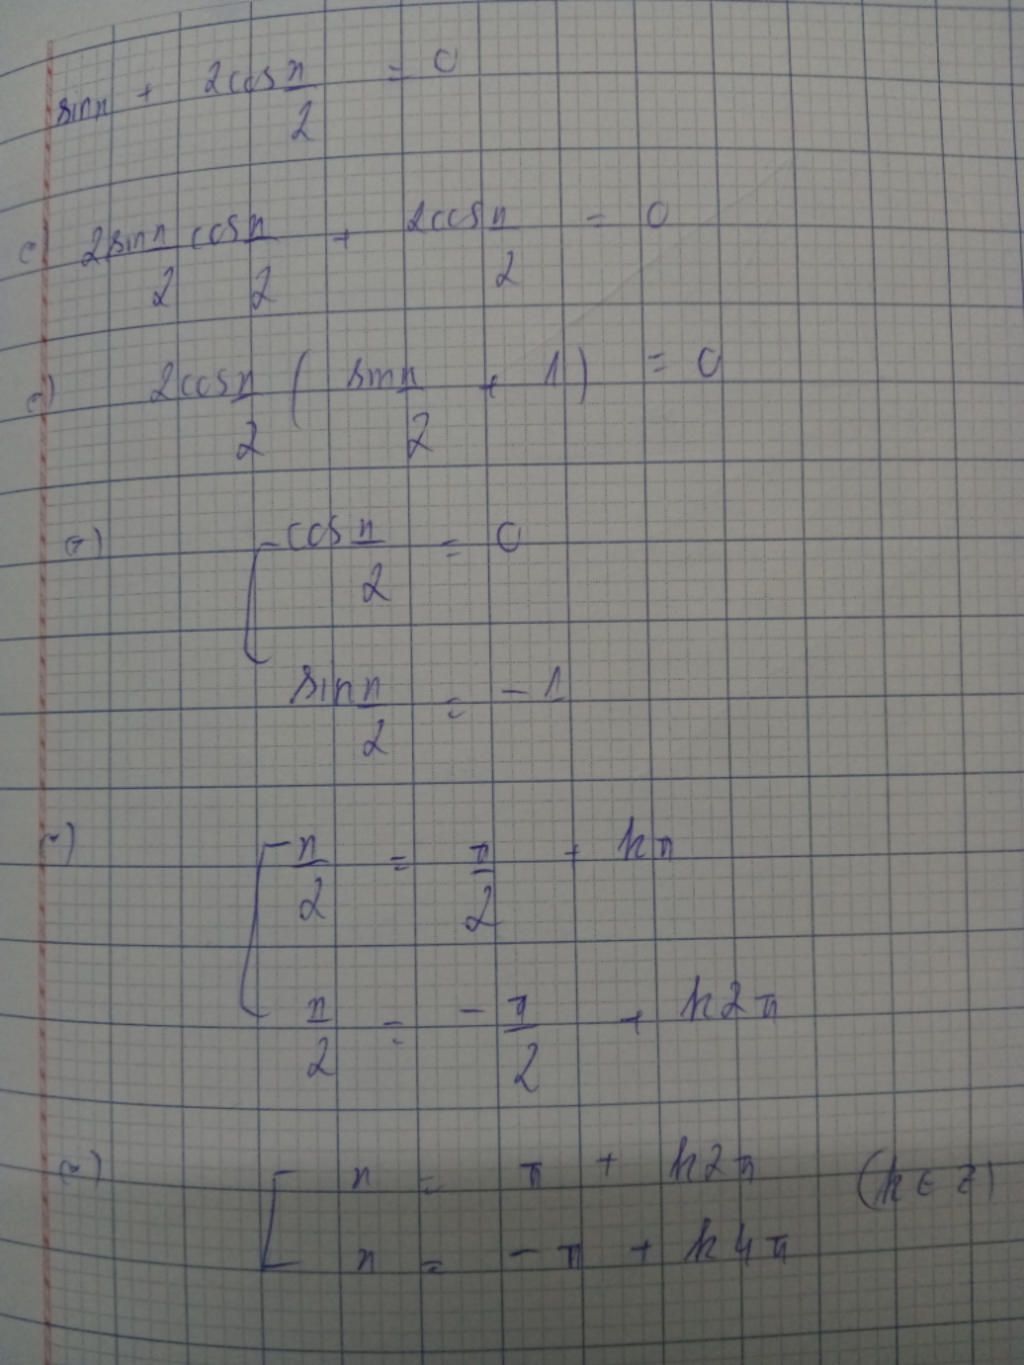 sinx + 2cos x/2 = 0
(=) 2sin x/2 cos x/2 + 2cos x/2 = 0
(=) 2cos x/2 ( sin x/2 + 1 ) = 0
(=) [ cos x/2 = 0
sin x/2 = -1
(=) [ x/2 = π/2 + kπ
x/2 = -π/2 + k2π
(=) [ x = π + k2π (k ∈ Z)
x = -π + k4π